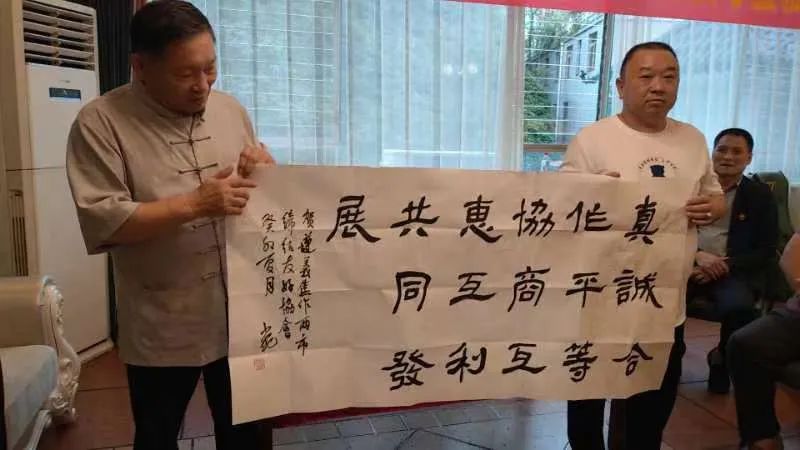 真誠合
作平等
協商互
惠互利
共同發
展
賀遵義焦作两市
締結友好協會
癸卯夏月